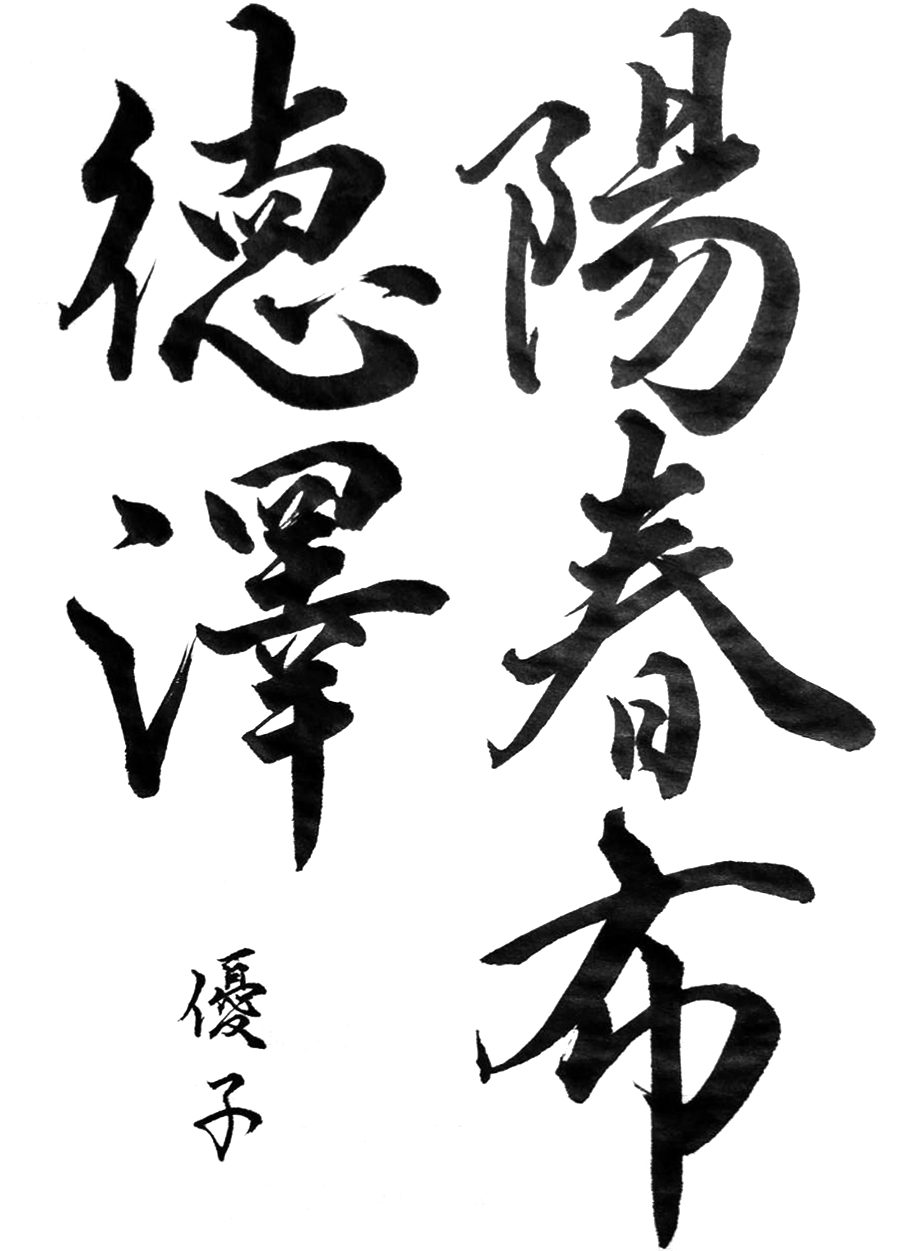 陽春布
徳澤
優子